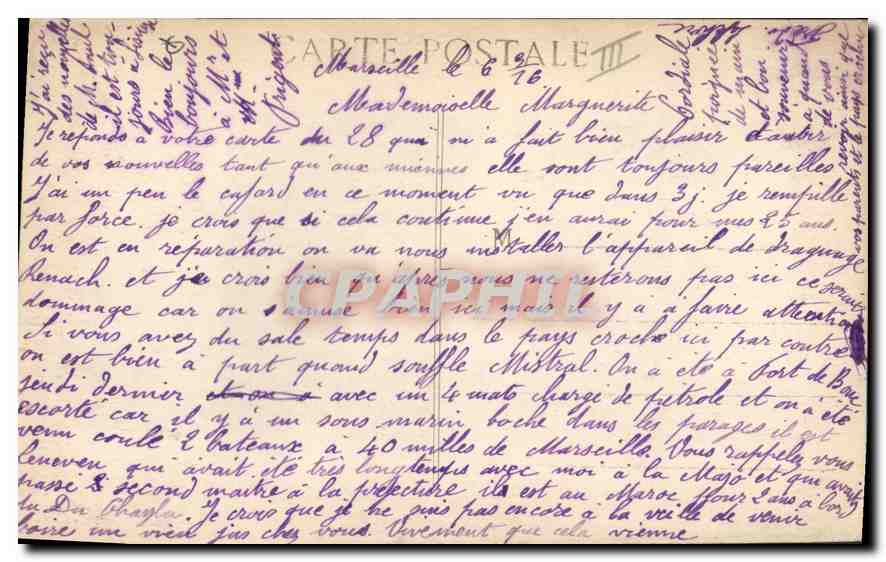 CARTE POSTALE
III
Marseille le 6 9/16
Mademoiselle Marguerite
Je réponds à votre carte du 28 qui m'a fait bien plaisir
de vos nouvelles tant qu'aux miennes elle sont toujours pareilles.
J'ai un peu le cafard en ce moment vu que dans 3 j. je rempille
par force. je crois que si cela continue j'en aurai pour mes 25 ans.
On est en réparation on va nous installer l'appareil de draguage
Renach. et je crois bien qu'après nous ne resterons pas ici ce serait
dommage car on s'amuse bien ici mais il y a à faire attention
Si vous avez du sale temps dans le pays croche ici par contre
on est bien à part quand souffle Mistral. On a été à Port de Bouc
jeudi dernier avec un 4 mats chargé de pétrole et on a été
escorté car il y à un sous marin boche dans les parages il est
venu coulé 2 bateaux à 40 milles de Marseille. Vous rappelez vous
Leneven qui avait été très longtemps avec moi à la Majo et qui avait
passé second maitre à la préfecture il est au Maroc pour 2 ans à bord
du Du Chayla. Je crois que je ne suis pas encore à la veille de venir
boire un vieu jus chez vous. Vivement que cela vienne
J'ai reçu
des nouvelles
de
il est
bien le
toujours
à Mr et
Mme
Prigent.
Cordiale
poignée
de main
et bon
souvenir
à quand
de vous
revoir ainsi que
vos parents et le
CPAPHIL